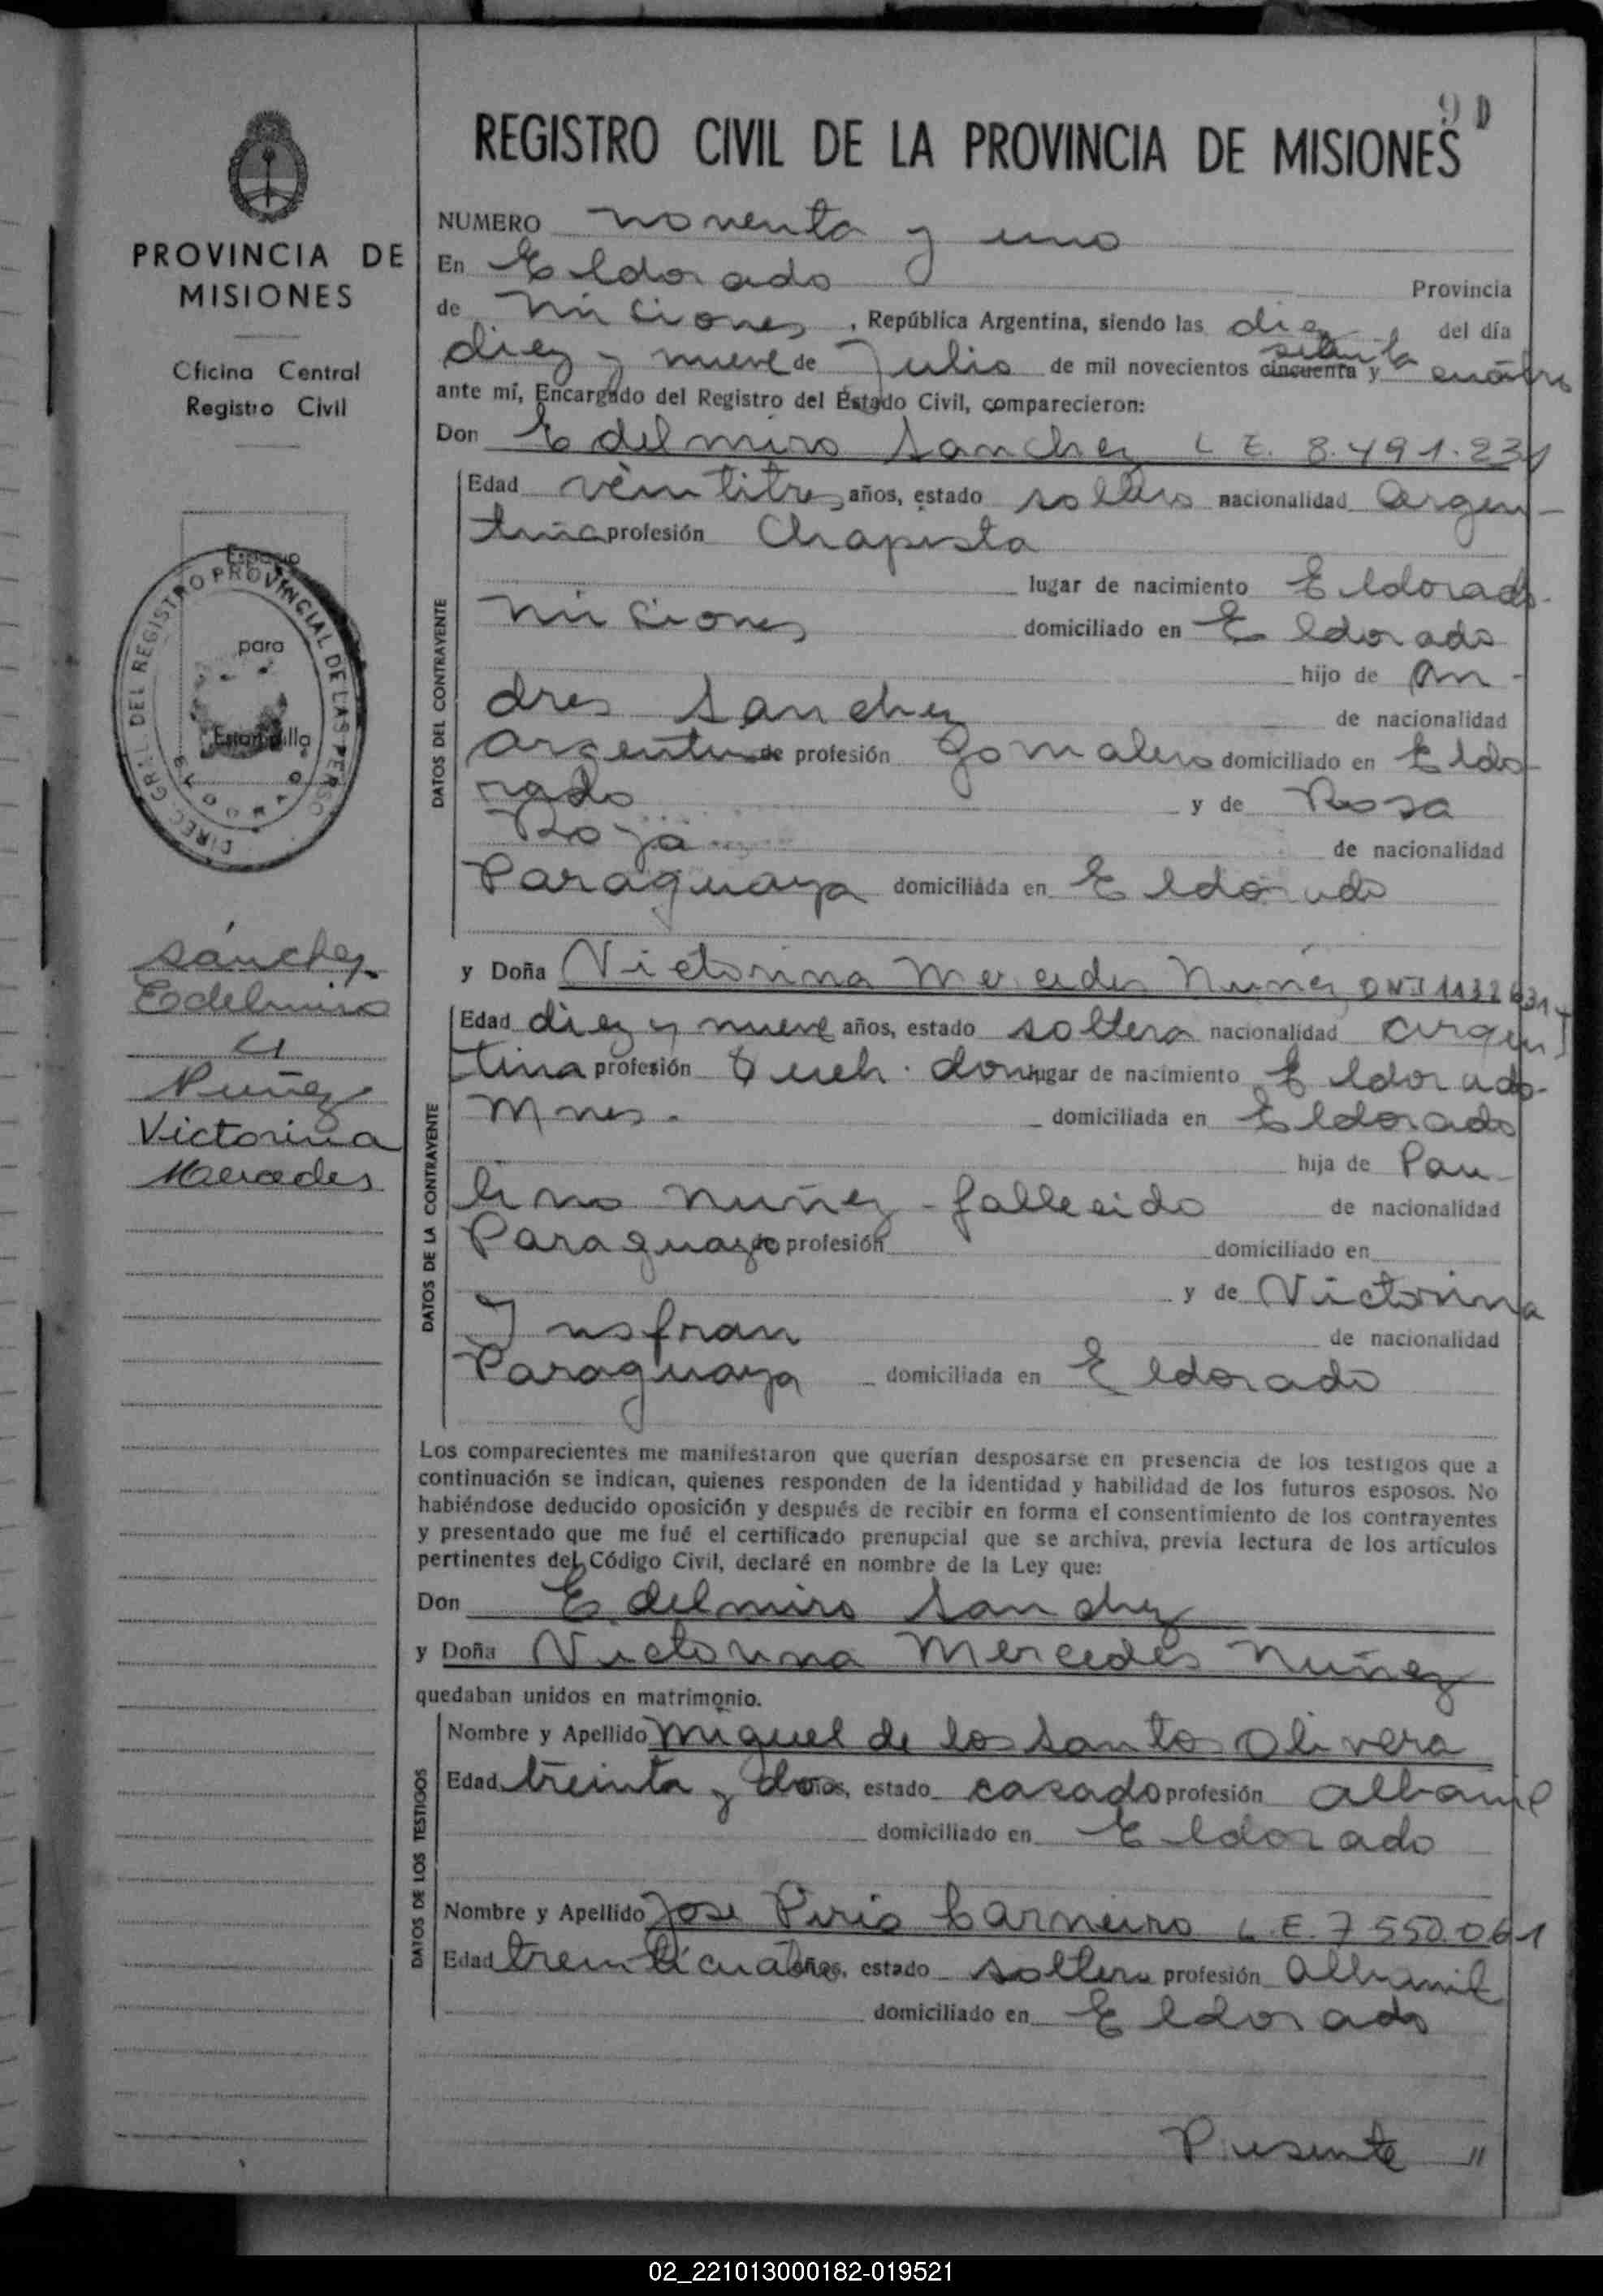 90
REGISTRO CIVIL DE LA PROVINCIA DE MISIONES
PROVINCIA DE
MISIONES
Oficina Central
Registro Civil
Espacio
para
Estampilla
DIREC. GRAL. DEL REGISTRO PROVINCIAL DE LAS PERSO
ELDORADO
Sánchez
Edelmiro
c/
Nuñez
Victorina
Mercedes
NUMERO noventa y uno
En Eldorado Provincia
de Miciones, República Argentina, siendo las diez del día
diez y nueve de Julio de mil novecientos cincuenta setenta y cuatro
ante mí, Encargado del Registro del Estado Civil, comparecieron:
Don Edelmiro Sanchez L E. 8.491.231
DATOS DEL CONTRAYENTE
Edad veintitres años, estado soltero nacionalidad Argen-
tina profesión Chapista
lugar de nacimiento Eldorado-
Miciones domiciliado en Eldorado
hijo de An-
dres Sanchez de nacionalidad
Argentino de profesión Jornalero domiciliado en Eldo-
rado y de Rosa
Roja de nacionalidad
Paraguaya domiciliada en Eldorado
y Doña Victorina Mercedes Nuñez DNI
DATOS DE LA CONTRAYENTE
Edad diez y nueve años, estado soltera nacionalidad Argen
tina profesión Queh. dom lugar de nacimiento Eldorado-
Mnes. domiciliada en Eldorado
hija de Pau-
lino Nuñez - fallecido de nacionalidad
Paraguayo profesión domiciliado en
y de Victorina
Insfran de nacionalidad
Paraguaya domiciliada en Eldorado
Los comparecientes me manifestaron que querían desposarse en presencia de los testigos que a
continuación se indican, quienes responden de la identidad y habilidad de los futuros esposos. No
habiéndose deducido oposición y después de recibir en forma el consentimiento de los contrayentes
y presentado que me fué el certificado prenupcial que se archiva, previa lectura de los artículos
pertinentes del Código Civil, declaré en nombre de la Ley que:
Don Edelmiro Sanchez
y Doña Victorina Mercedes Nuñez
quedaban unidos en matrimonio.
DATOS DE LOS TESTIGOS
Nombre y Apellido Miguel de los Santos Olivera
Edad treinta y dos años, estado casado profesión albanil
domiciliado en Eldorado
Nombre y Apellido Jose Piris Carneiro L.E. 7 550.061
Edad treinticuatro años, estado soltero profesión Albanil
domiciliado en Eldorado
Presente "
02_221013000182-019521